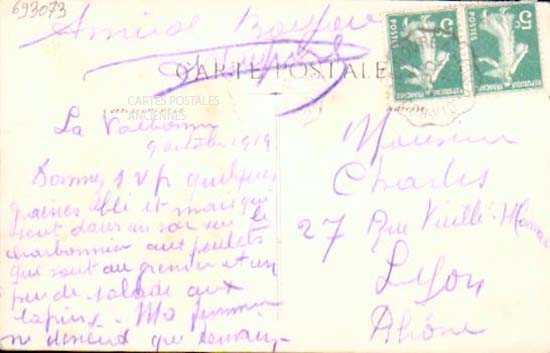 693073
Amical Bonjour
CARTE POSTALE
CARTES POSTALES
ANCIENNES
5c
POSTES
REPUBLIQUE FRANÇAISE
5c
POSTES
La Valbonne
9 octobre 1919
Donnez s.v.p quelques
graines blé et maïs qui
sont dans un sac sur le
charbonnier aux poulets
qui sont au grenier et un
peu de salade aux
lapins. Ma femme
ne descend que demain
Monsieur
Charles
27 Rue Vieille-Monnaie
Lyon
Rhône